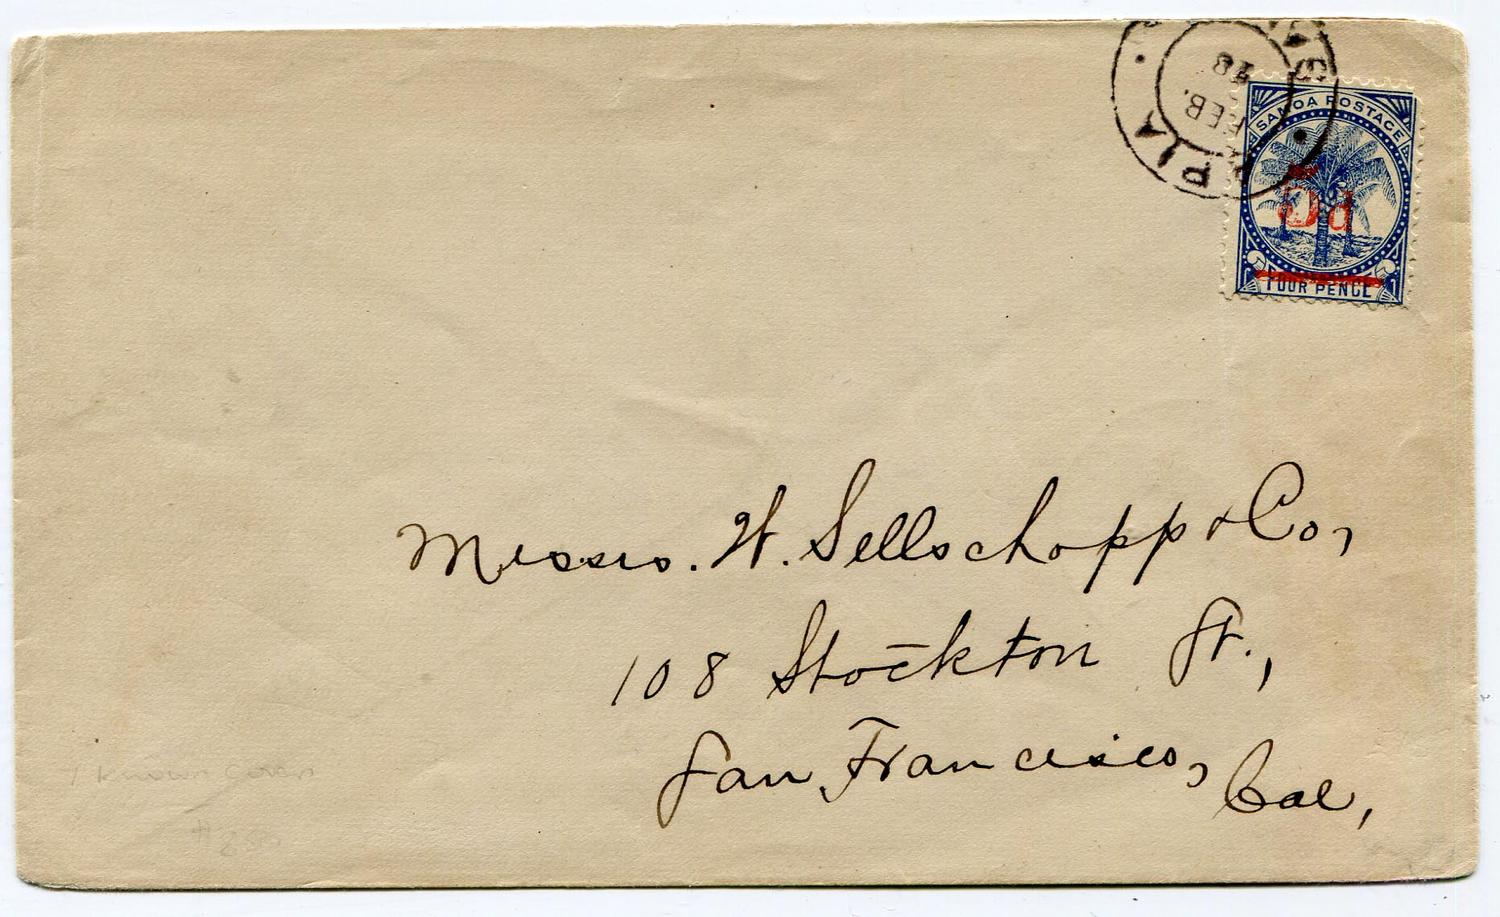 PIA
FEB.
SAMOA POSTAGE
5d
FOUR PENCE
Messrs. W. Sellschopp & Co,
108 Stockton St.,
San Francisco, Cal,
1 known cover